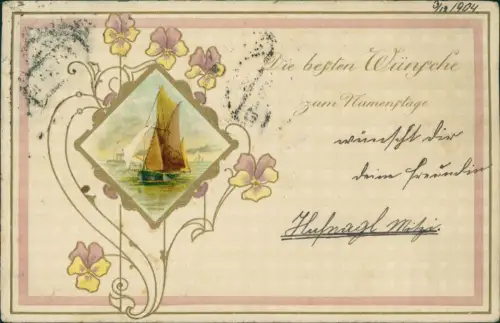 9/12 1904
Die besten Wünsche
zum Namenstage
wünscht dir
deine Freundin
Hufnagl Mitzi.